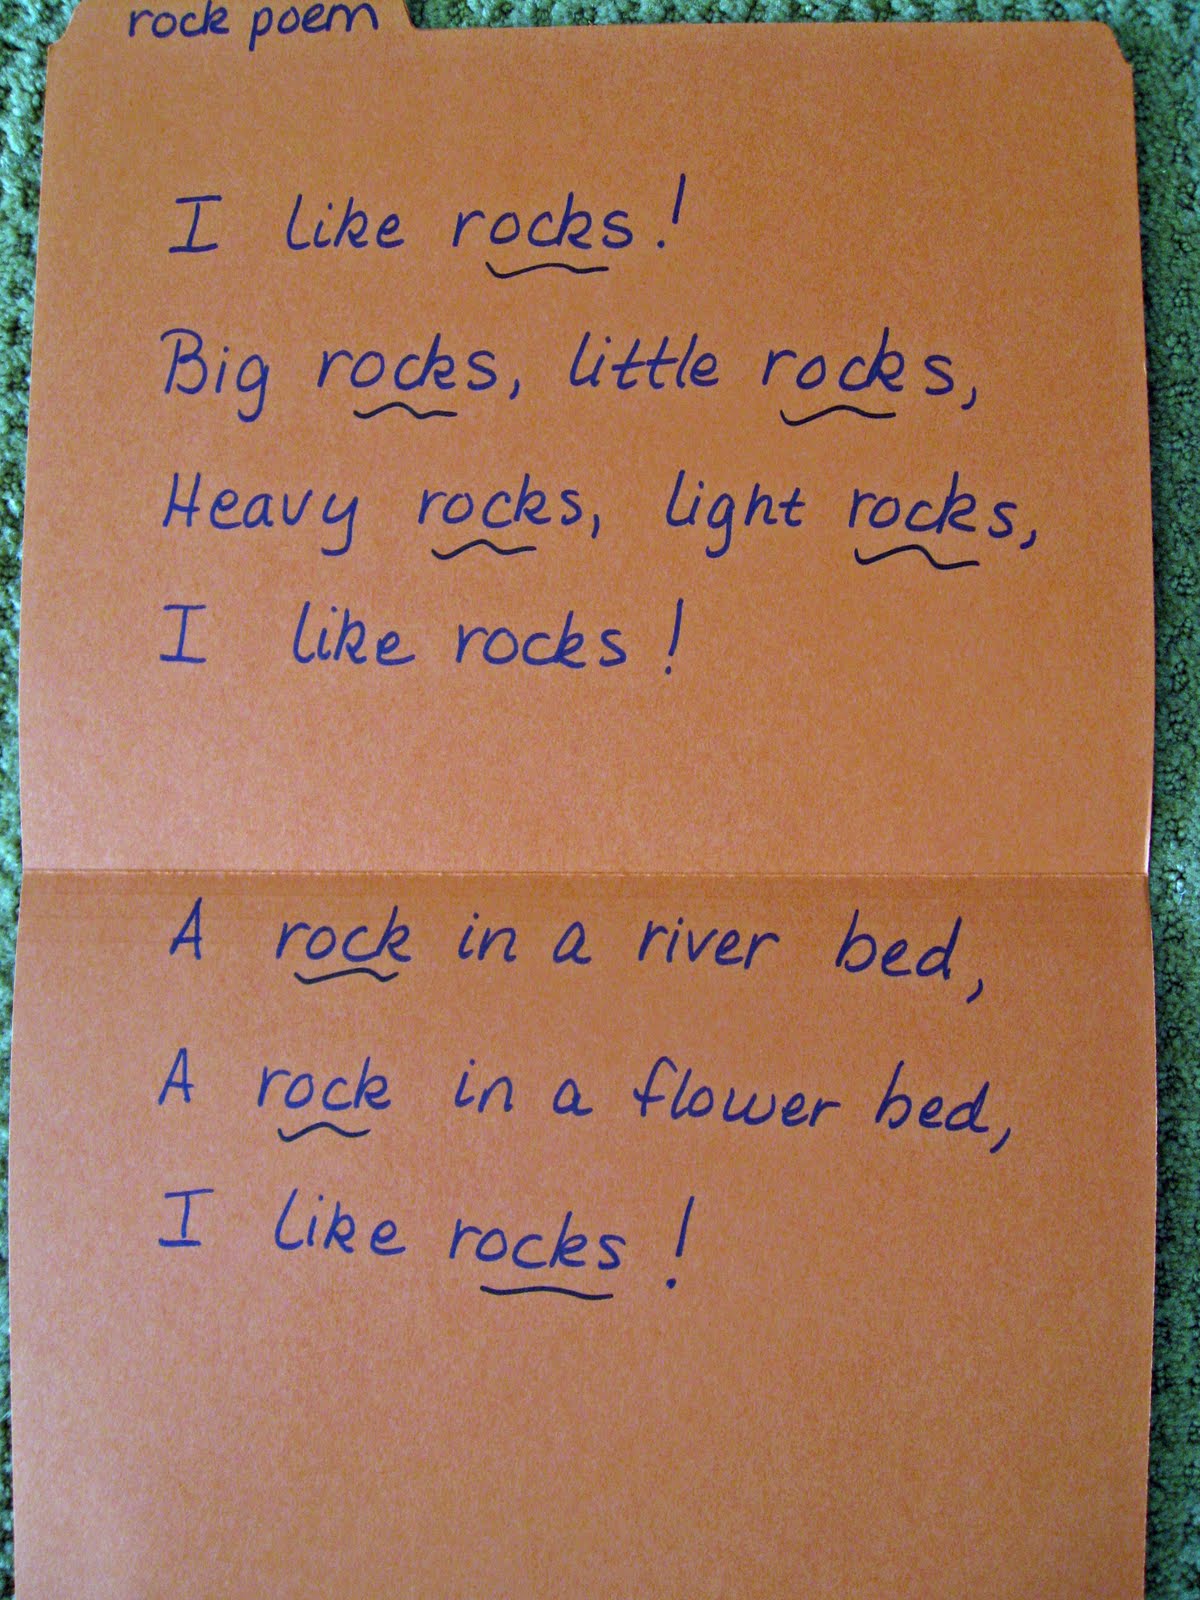 rock poem
I like rocks!
Big rocks, little rocks,
Heavy rocks, light rocks,
I like rocks!
A rock in a river bed,
A rock in a flower bed,
I like rocks!